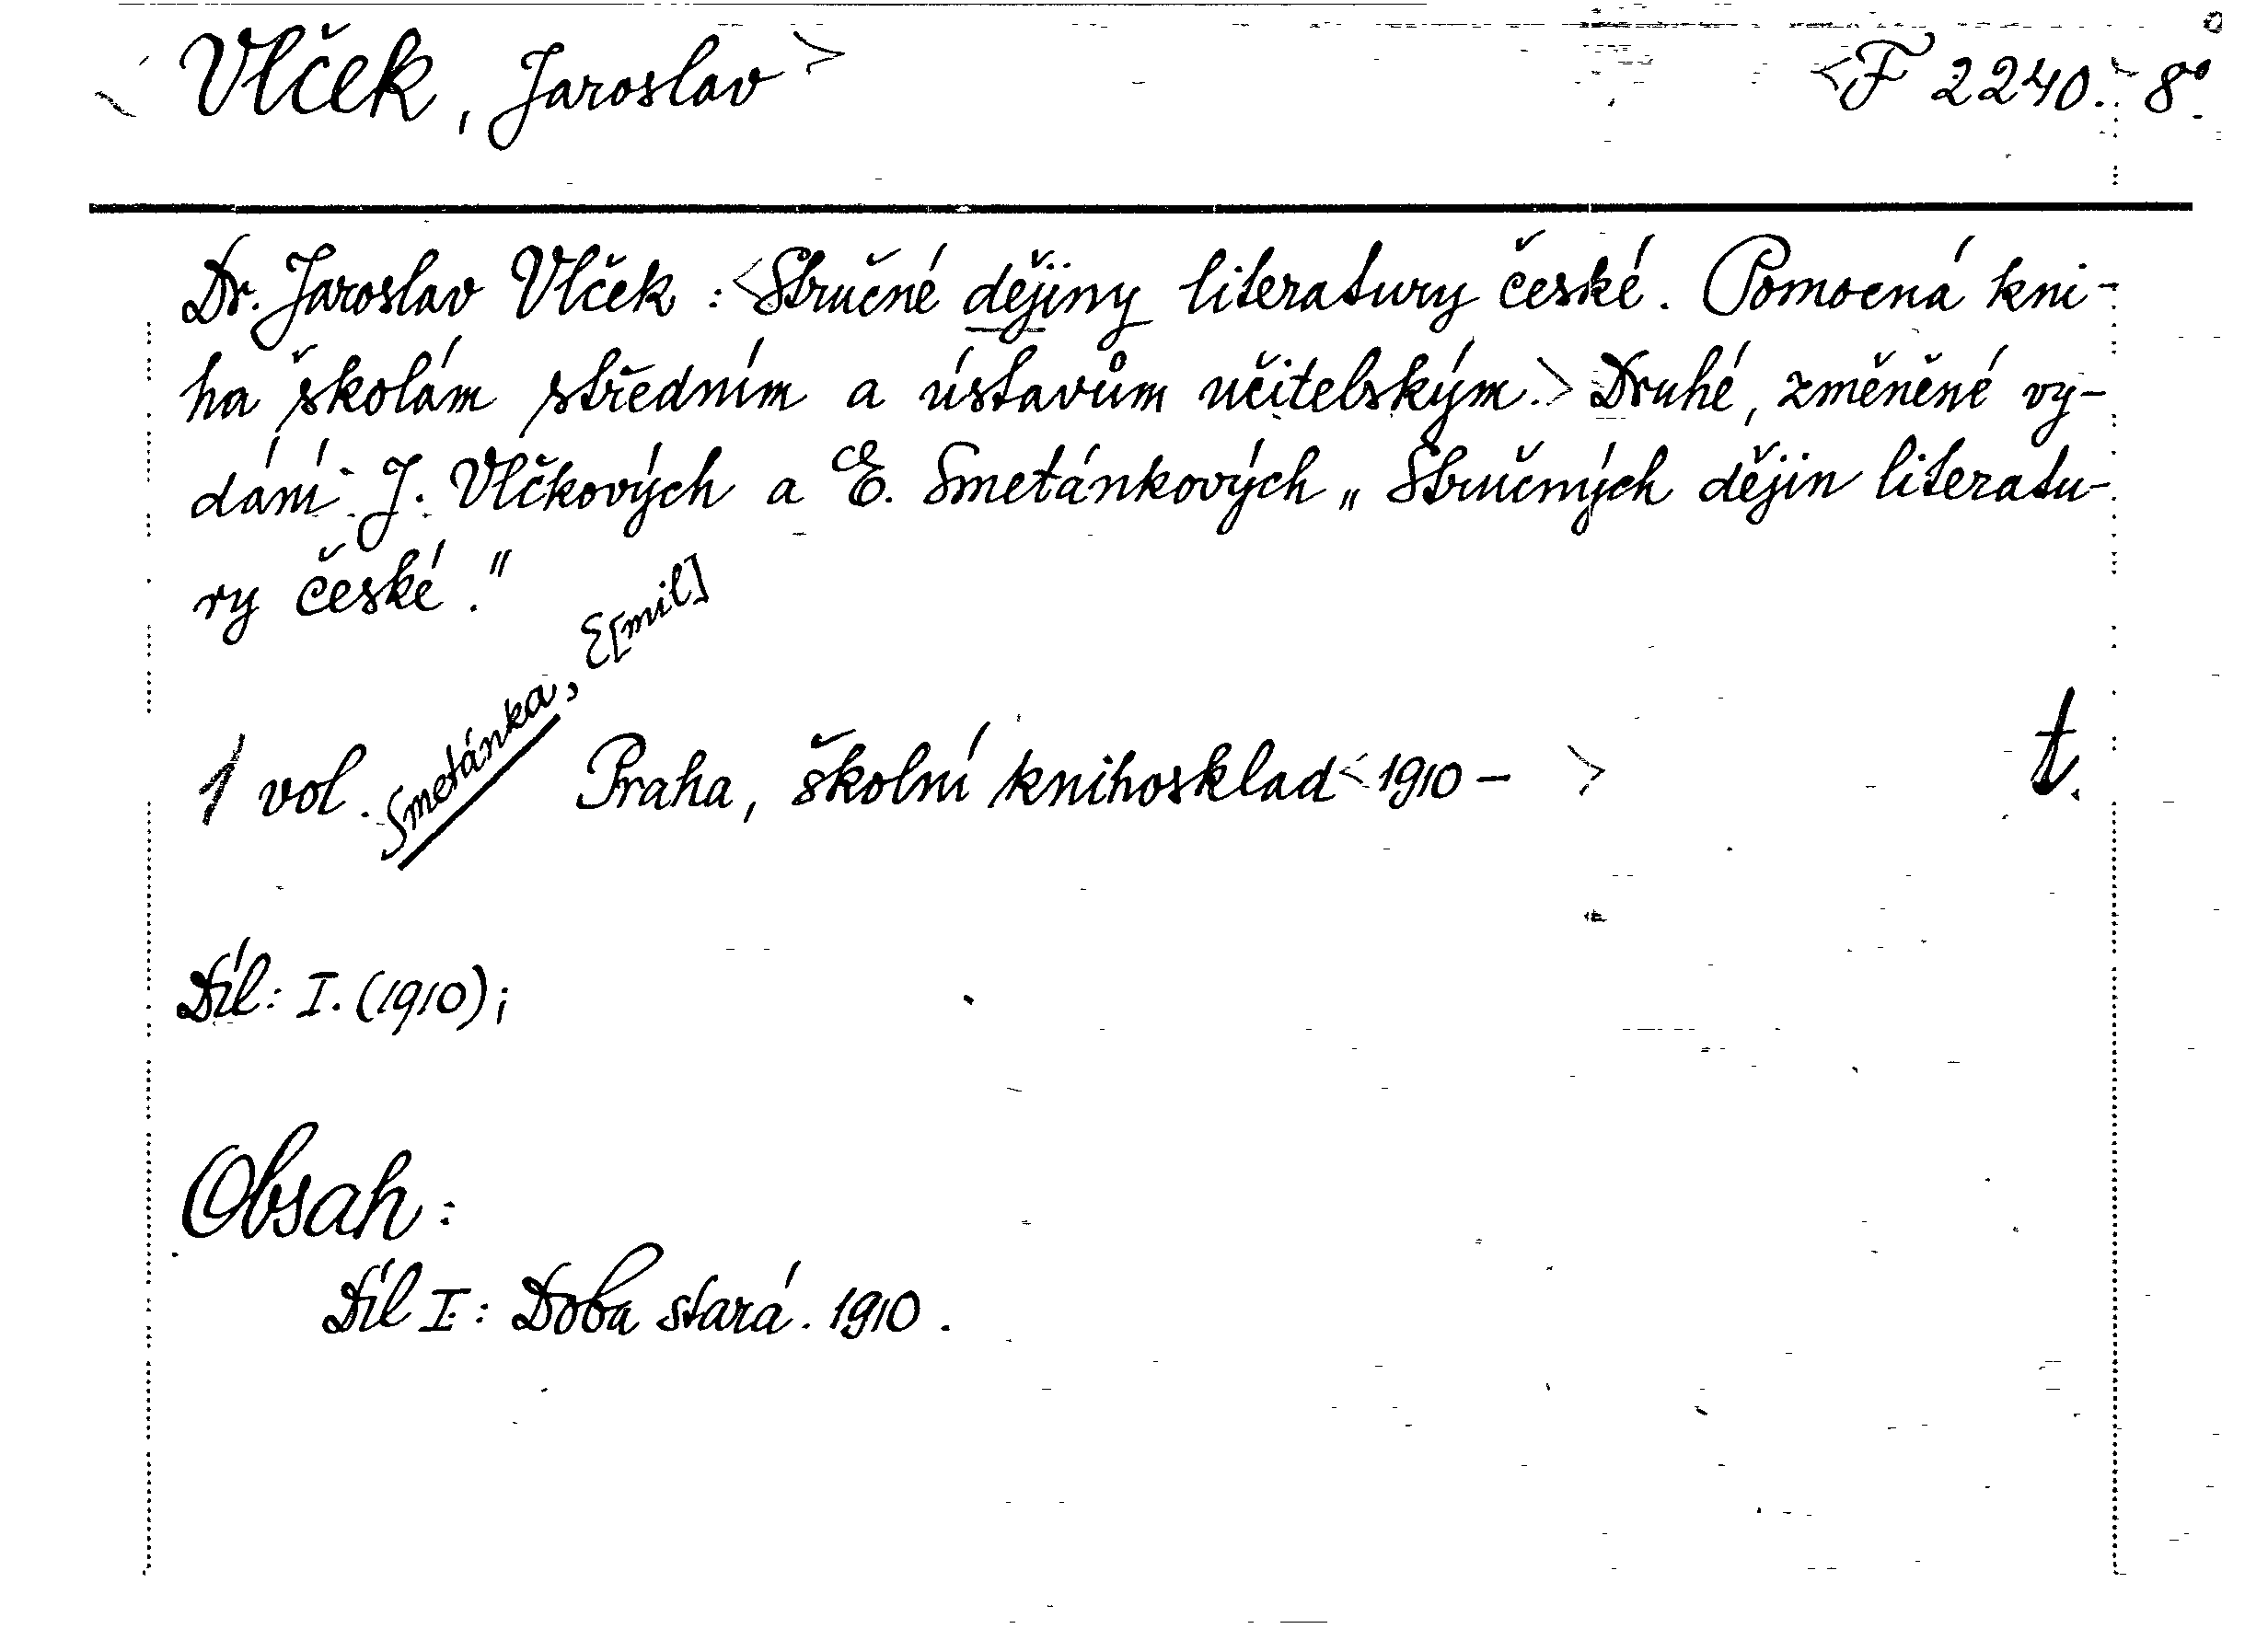 <Vlček, Jaroslav>
<F 2240.> 8°.
Dr. Jaroslav Vlček : <Stručné dějiny literatury české. Pomocná kni-
ha školám středním a ústavům učitelským.> Druhé, změněné vy-
dání J. Vlčkových a E. Smetánkových „Stručných dějin literatu-
ry české."
Smetánka, E[mil]
1 vol. Praha, školní knihosklad <1910 - > t.
Díl: I. (1910);
Obsah:
Díl I.: Doba stará. 1910.